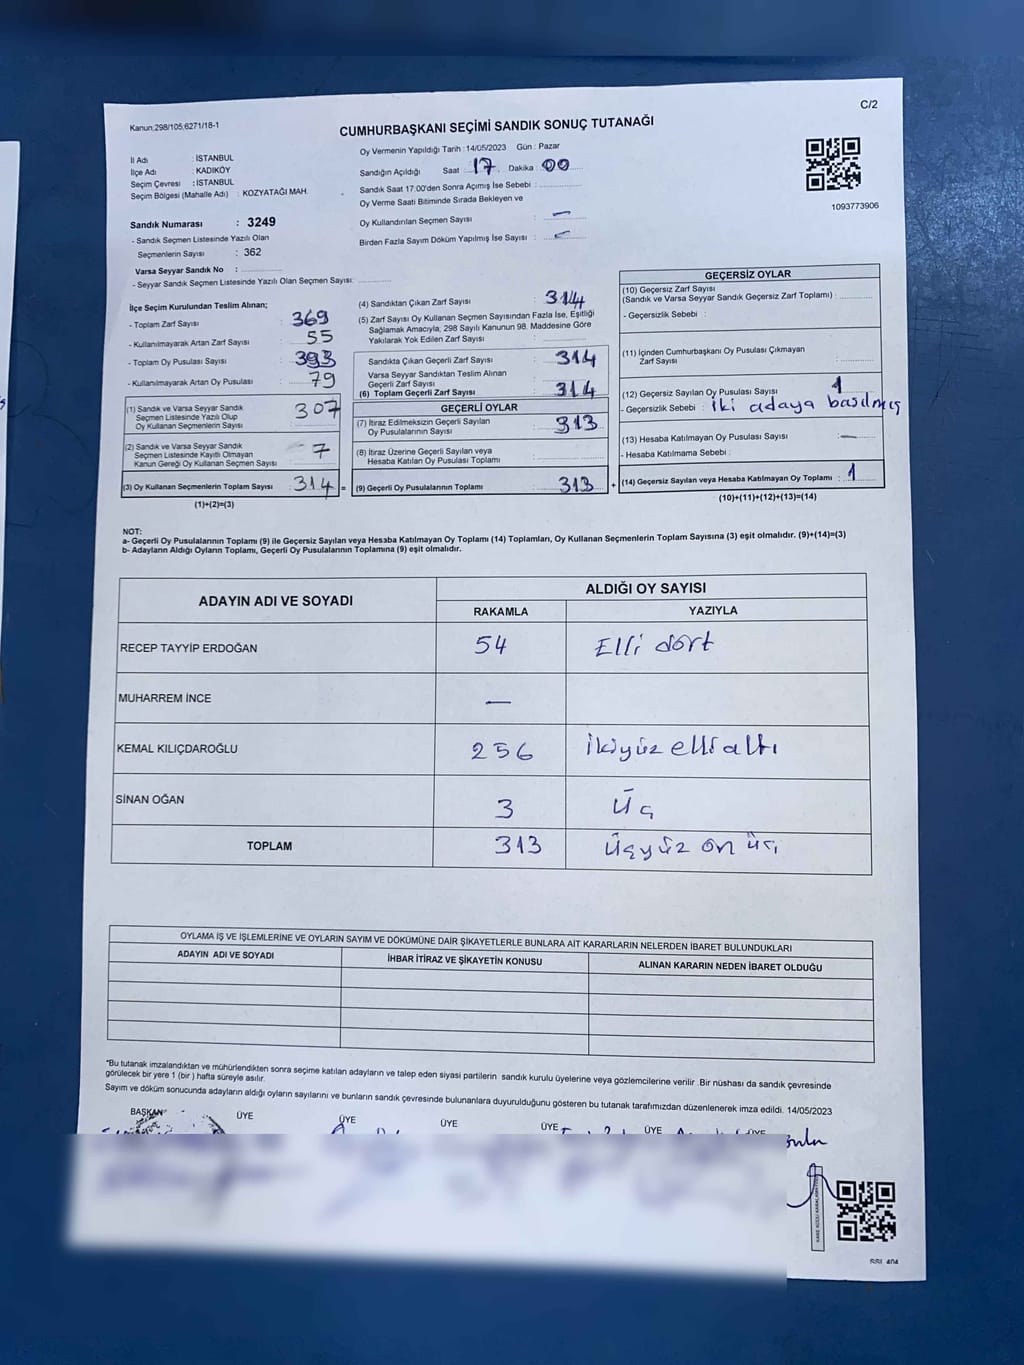 C/2
Kanun;298/105;6271/18-1
CUMHURBAŞKANI SEÇİMİ SANDIK SONUÇ TUTANAĞI
İl Adı : İSTANBUL
İlçe Adı : KADIKÖY
Seçim Çevresi : İSTANBUL
Seçim Bölgesi (Mahalle Adı) : KOZYATAĞI MAH.
Sandık Numarası : 3249
- Sandık Seçmen Listesinde Yazılı Olan
Seçmenlerin Sayısı : 362
Varsa Seyyar Sandık No :
- Seyyar Sandık Seçmen Listesinde Yazılı Olan Seçmen Sayısı:
Oy Vermenin Yapıldığı Tarih :14/05/2023 Gün : Pazar
Sandığın Açıldığı Saat : 17 Dakika : 00
Sandık Saat 17:00'den Sonra Açımış İse Sebebi :
Oy Verme Saati Bitiminde Sırada Bekleyen ve
Oy Kullandırılan Seçmen Sayısı : —
Birden Fazla Sayım Döküm Yapılmış İse Sayısı : —
1093773906
İlçe Seçim Kurulundan Teslim Alınan;
- Toplam Zarf Sayısı : 369
- Kullanılmayarak Artan Zarf Sayısı : 55
- Toplam Oy Pusulası Sayısı : 393
- Kullanılmayarak Artan Oy Pusulası : 79
(1) Sandık ve Varsa Seyyar Sandık
Seçmen Listesinde Yazılı Olup
Oy Kullanan Seçmenlerin Sayısı : 307
(2) Sandık ve Varsa Seyyar Sandık
Seçmen Listesinde Kayıtlı Olmayan
Kanun Gereği Oy Kullanan Seçmen Sayısı : 7
(3) Oy Kullanan Seçmenlerin Toplam Sayısı : 314 =
(1)+(2)=(3)
(4) Sandıktan Çıkan Zarf Sayısı : 314
(5) Zarf Sayısı Oy Kullanan Seçmen Sayısından Fazla İse, Eşitliği
Sağlamak Amacıyla, 298 Sayılı Kanunun 98. Maddesine Göre
Yakılarak Yok Edilen Zarf Sayısı :
Sandıkta Çıkan Geçerli Zarf Sayısı : 314
Varsa Seyyar Sandıktan Teslim Alınan
Geçerli Zarf Sayısı :
(6) Toplam Geçerli Zarf Sayısı : 314
GEÇERLİ OYLAR
(7) İtiraz Edilmeksizin Geçerli Sayılan
Oy Pusulalarının Sayısı : 313
(8) İtiraz Üzerine Geçerli Sayılan veya
Hesaba Katılan Oy Pusulası Toplamı :
(9) Geçerli Oy Pusulalarının Toplamı : 313 +
GEÇERSİZ OYLAR
(10) Geçersiz Zarf Sayısı
(Sandık ve Varsa Seyyar Sandık Geçersiz Zarf Toplamı) :
- Geçersizlik Sebebi :
(11) İçinden Cumhurbaşkanı Oy Pusulası Çıkmayan
Zarf Sayısı :
(12) Geçersiz Sayılan Oy Pusulası Sayısı : 1
- Geçersizlik Sebebi : iki adaya basılmış
(13) Hesaba Katılmayan Oy Pusulası Sayısı : —
- Hesaba Katılmama Sebebi :
(14) Geçersiz Sayılan veya Hesaba Katılmayan Oy Toplamı : 1
(10)+(11)+(12)+(13)=(14)
NOT:
a- Geçerli Oy Pusulalarının Toplamı (9) ile Geçersiz Sayılan veya Hesaba Katılmayan Oy Toplamı (14) Toplamları, Oy Kullanan Seçmenlerin Toplam Sayısına (3) eşit olmalıdır. (9)+(14)=(3)
b- Adayların Aldığı Oyların Toplamı, Geçerli Oy Pusulalarının Toplamına (9) eşit olmalıdır.
ADAYIN ADI VE SOYADI ALDIĞI OY SAYISI
RAKAMLA YAZIYLA
RECEP TAYYİP ERDOĞAN 54 Elli dört
MUHARREM İNCE —
KEMAL KILIÇDAROĞLU 256 ikiyüz elli altı
SİNAN OĞAN 3 Üç
TOPLAM 313 Üçyüz on üç
OYLAMA İŞ VE İŞLEMLERİNE VE OYLARIN SAYIM VE DÖKÜMÜNE DAİR ŞİKAYETLERLE BUNLARA AİT KARARLARIN NELERDEN İBARET BULUNDUKLARI
ADAYIN ADI VE SOYADI İHBAR İTİRAZ VE ŞİKAYETİN KONUSU ALINAN KARARIN NEDEN İBARET OLDUĞU
*Bu tutanak imzalandıktan ve mühürlendikten sonra seçime katılan adayların ve talep eden siyasi partilerin sandık kurulu üyelerine veya gözlemcilerine verilir .Bir nüshası da sandık çevresinde
görülecek bir yere 1 (bir ) hafta süreyle asılır.
Sayım ve döküm sonucunda adayların aldığı oyların sayılarını ve bunların sandık çevresinde bulunanlara duyurulduğunu gösteren bu tutanak tarafımızdan düzenlenerek imza edildi. 14/05/2023
BAŞKAN ÜYE ÜYE ÜYE ÜYE ÜYE ÜYE